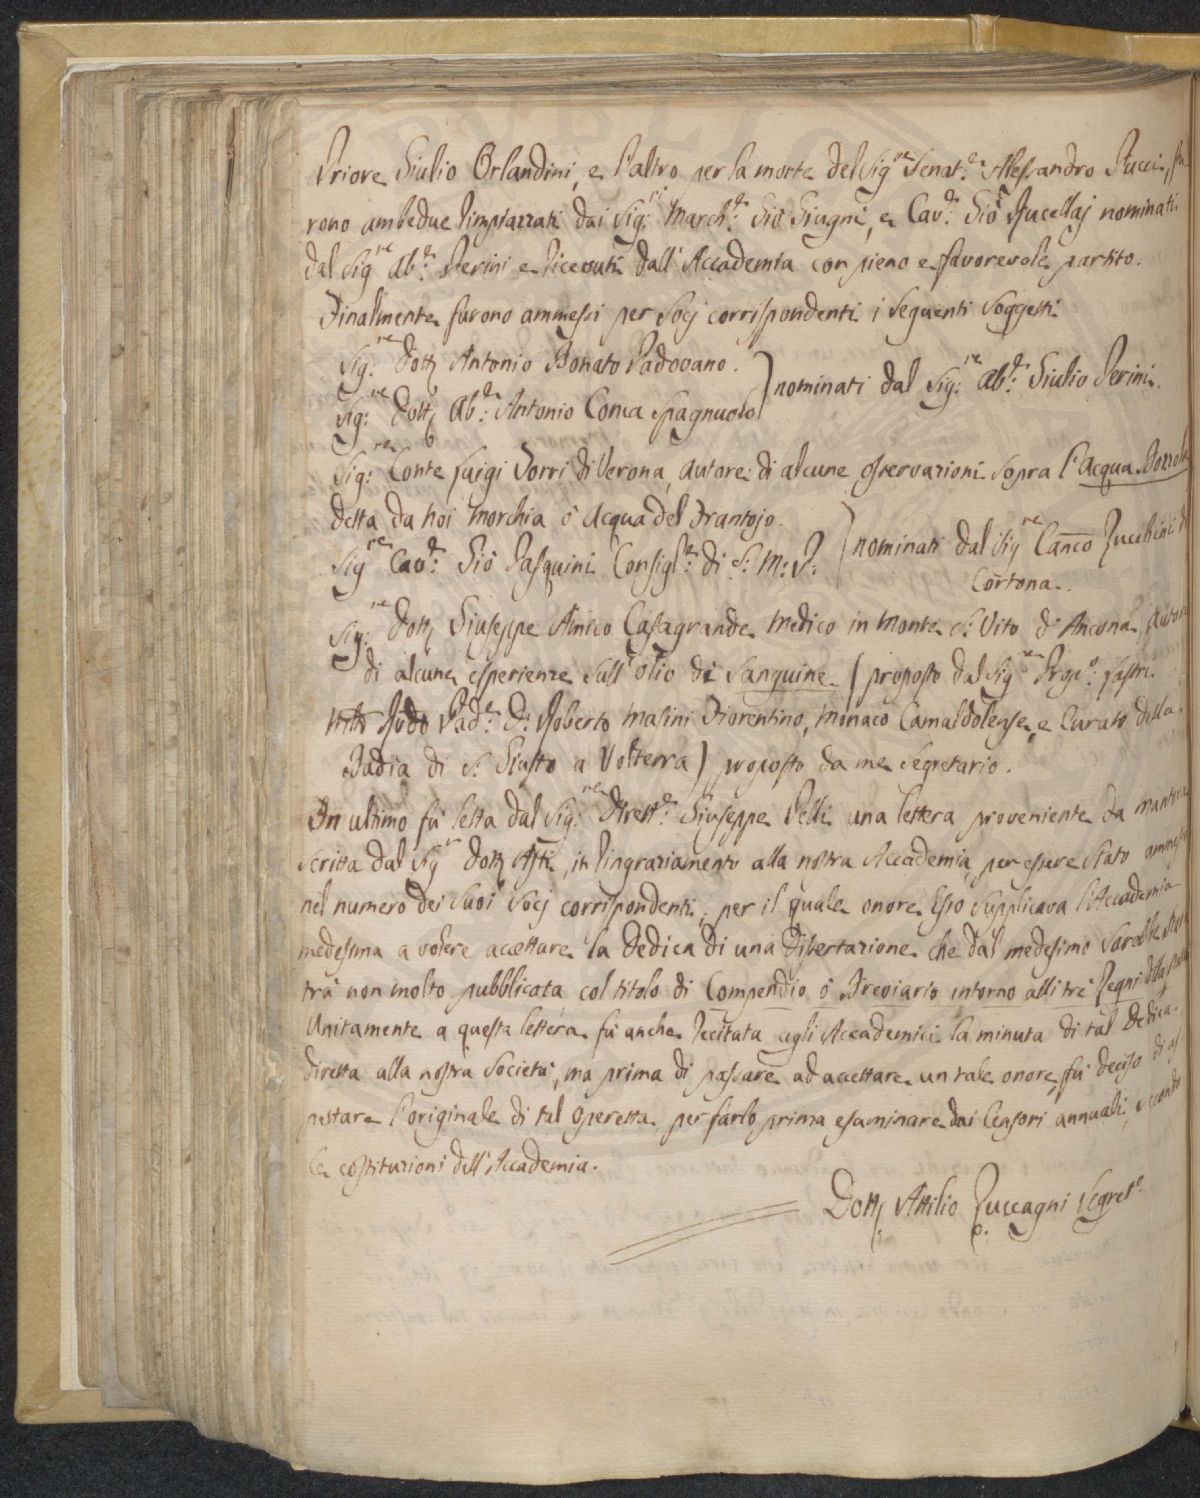 Priore Giulio Orlandini, e l'altro per la morte del Sig.re Senat.e Alessandro Pucci, fu-
rono ambedue rimpiazzati dai Sig.ri March.e Gio Giugni, e Cav.e Gio Rucellaj nominati
dal Sig.re Ab.e Perini e ricevuti dall'Accademia con pieno e favorevole partito.
Finalmente furono ammessi per Socj corrispondenti i seguenti Soggetti
Sig.re Dott. Antonio Bonato Padovano.
Sig.re Dott. Ab.e Antonio Conca Spagnuolo) nominati dal Sig.re Ab.e Giulio Perini.
Sig.re Conte Luigi Torri di Verona, autore di alcune osservazioni sopra l'Acqua
detta da noi Morchia ò Acqua del Frantojo.
Sig.re Cav.e Giò Pasquini Consigl.e di S: M: I: ) nominati dal Sig.re Canco Zucchini di
Cortona.
Sig.re Dott. Giuseppe Amico Casagrande Medico in Monte S. Vito d'Ancona, Autore
di alcune esperienze sull'olio di Sanguine ( proposto dal Sig.re Lastri
Pad.e D. Roberto Masini Fiorentino, Monaco Camaldolense, e Curato della
Badia di S. Giusto a Volterra) proposto da me Segretario.
In ultimo fù letta dal Sig.re Dirett.e Giuseppe Pelli una lettera proveniente da Mantova
scritta dal Sig.r Dott. Asti, in ringraziamento alla nostra Accademia, per essere stato ammesso
nel numero dei suoi Socj corrispondenti, per il quale onore Esso supplicava l'Accademia
medesima a volere accettare la Dedica di una Dissertazione che dal medesimo sarebbe stata
trà non molto pubblicata col titolo di Compendio ò Breviario intorno alli tre Regni della
Unitamente a questa lettera fù anche recitata agli Accademici la minuta di tal Dedica
diretta alla nostra Società, ma prima di passare ad accettare un tale onore, fù deciso di as-
pettare l'originale di tal Operetta, per farlo prima esaminare dai Censori annuali, secondo
le costituzioni dell'Accademia.
Dott. Attilio Zuccagni Segret.o